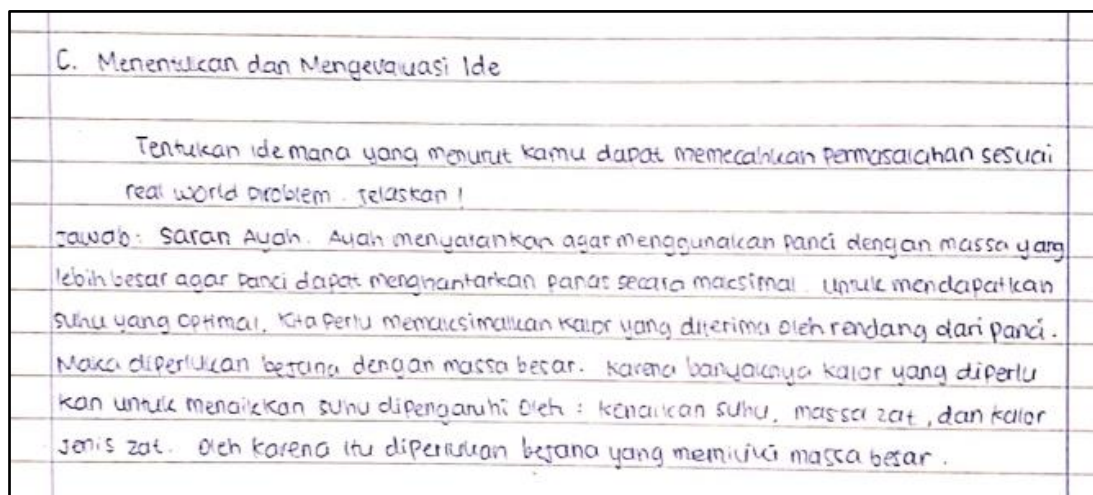 C. Menentukan dan Mengevaluasi Ide
Tentukan ide mana yang menurut kamu dapat memecahkan permasalahan sesuai
real world problem. Jelaskan!
Jawab: Saran Ayah. Ayah menyarankan agar menggunakan panci dengan massa yang
lebih besar agar panci dapat menghantarkan panas secara maksimal. Untuk mendapatkan
suhu yang optimal, kita perlu memaksimalkan kalor yang diterima oleh rendang dari panci.
Maka diperlukan bejana dengan massa besar. Karena banyaknya kalor yang diperlu
kan untuk menaikkan suhu dipengaruhi oleh : kenaikan suhu, massa zat, dan kalor
jenis zat. Oleh karena itu diperlukan bejana yang memiliki massa besar.